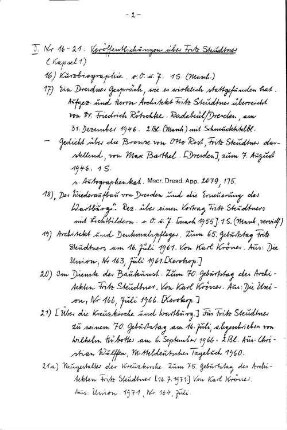 - 2 -
I. Nr 16-21. Veröffentlichungen über Fritz Steudtner
(Kapsel 1)
16) Kurzbiographie o. O. u. J. 1 S (Masch.)
17) Ein Dresdner Gespräch, wie es wirklich stattgefunden hat.
und Herrn Architekt Fritz Steudtner überreicht
von Dr. Friedrich Radebeul/Dresden, am
31. Dezember 1946. 2 Bl. (Masch.) mit
- Gedicht über die Bronze von Otto Rost, Fritz Steudtner dar-
stellend, von Max Barthel. [Dresden], zum 7. August
1946. 1 S.
s. Autographenkat. Mscr. Dresd. App. 2079, 175
18) Der Wiederaufbau von Dresden und die Erneuerung der
Wartburg". Rez. über einen Vortrag Fritz Steudtners
mit Lichtbildern. o. O. u. J. 1955] 1 S (Masch.)
19) Architekt und Denkmalpfleger. Zum 65. Geburtstag Fritz
Steudtners am 16. Juli 1961. Von Karl Aus: Die
Union, Nr 163, Juli 1961 [Xerokop.]
20) Im Dienste der Baukunst. Zum 70. Geburtstag des Archi-
tekten Fritz Steudtner. Von Karl Aus: Die Uni-
on, Nr 166, Juli 1966 [Xerokop.]
21) [Über die Kreuzkirche und Wartburg.] Für Fritz Steudtner
zu seinem 70. Geburtstag am 16. Juli, abgeschrieben von
am 6. September 1966. Bl. Aus: Chri-
stian Mitteldeutsches Tagebuch 1960.
21a) Neugestalter der Kreuzkirche zum 75. Geburtstag des Archi-
tekten Fritz Steudtner [16.7.1971] Von Karl
Aus: Union 1971, Nr. 164, Juli